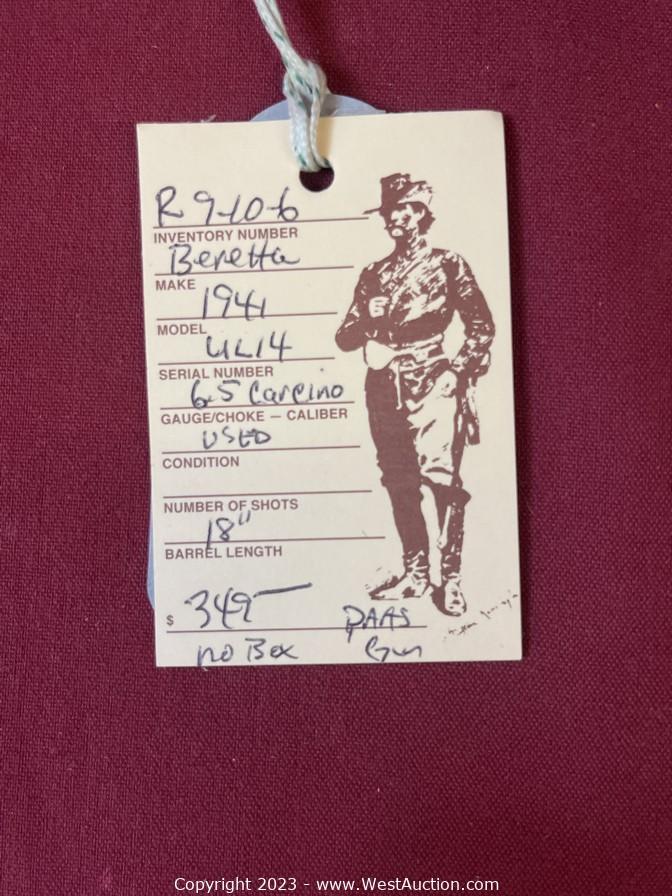 R 9-10-6
INVENTORY NUMBER
Beretta
MAKE
1941
MODEL
UL14
SERIAL NUMBER
6.5 Carcino
GAUGE/CHOKE — CALIBER
USED
CONDITION
NUMBER OF SHOTS
18"
BARREL LENGTH
$ 349—
no Box
PAAS
Gun
Copyright 2023 - www.WestAuction.com